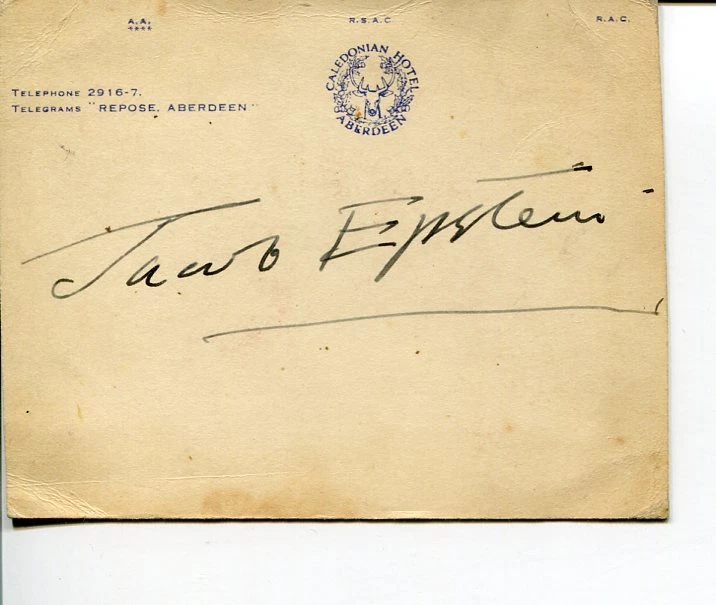 A.A.
****
R.S.A.C.
R.A.C.
CALEDONIAN HOTEL
ABERDEEN
TELEPHONE 2916-7.
TELEGRAMS "REPOSE, ABERDEEN"
Jacob Epstein